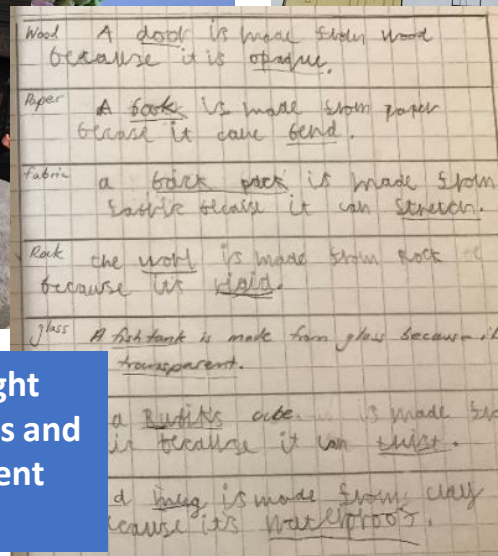 Wood A door is made from wood
because it is opaque.
Paper A book is made from paper
becase it cane bend.
fabric a back pack is made from
because it can stretch.
Rock the worl is made from Rock
because its
glass A fish tank is made from glass because it
transparent.
a Rubiks cube is made
because it can twist.
mug is made from clay
cause it's waterproof.
ght
s and
ent